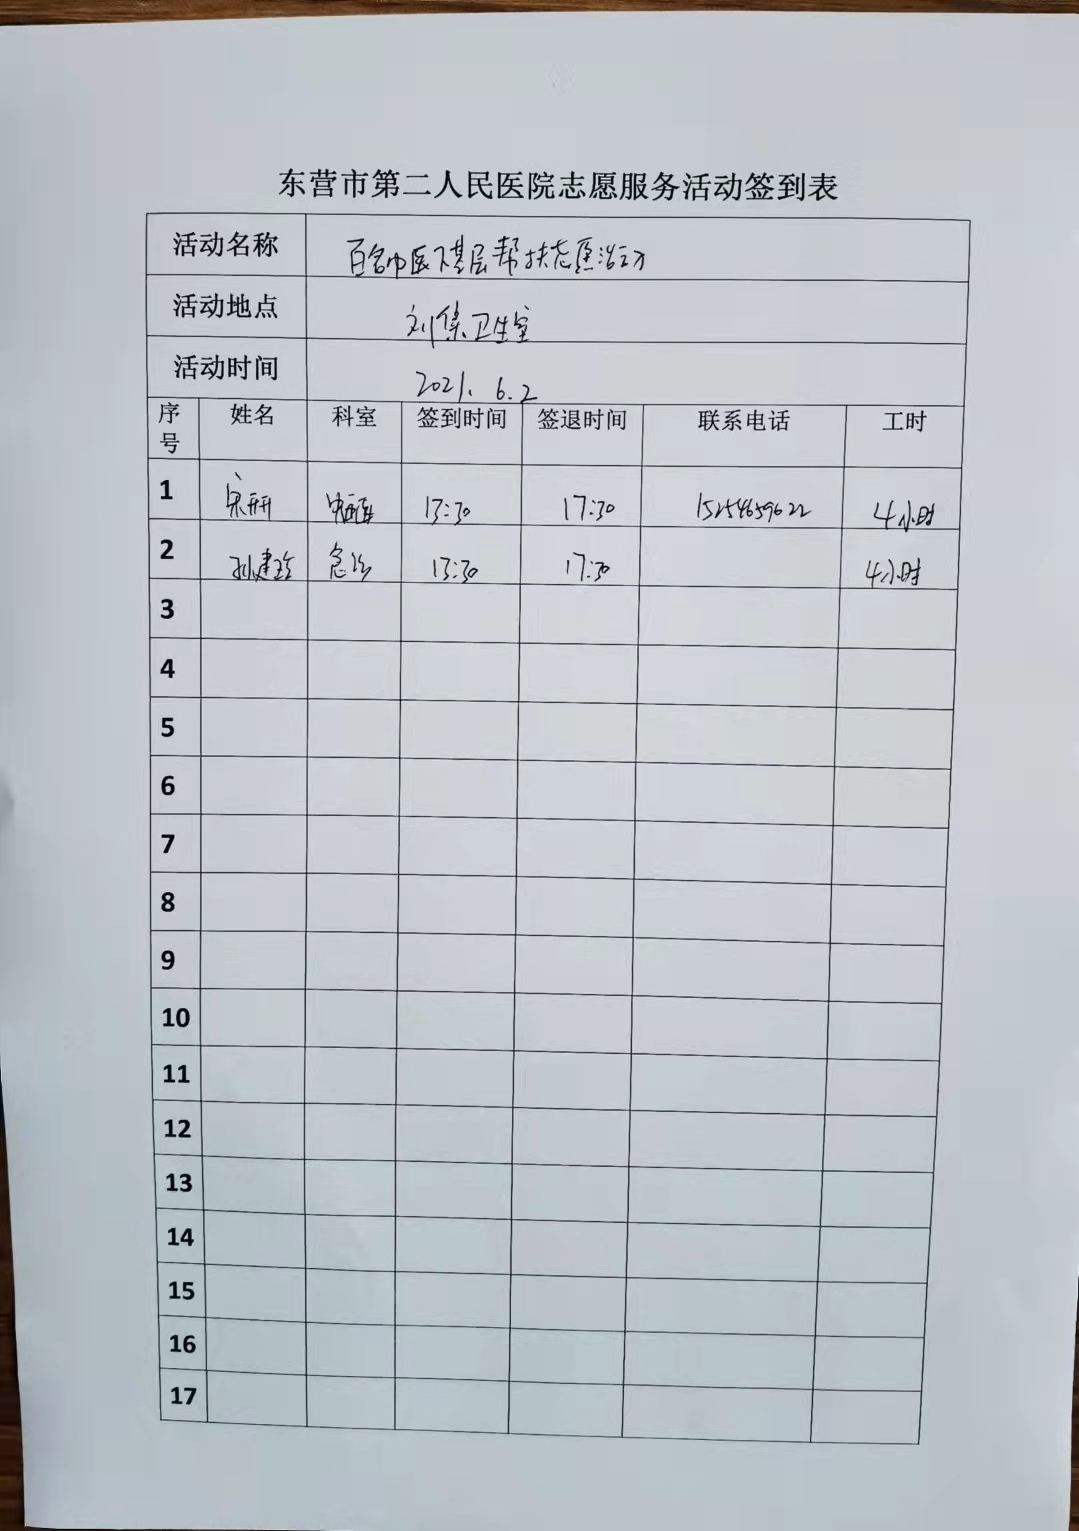 东营市第二人民医院志愿服务活动签到表
活动名称 百名中医下基层帮扶志愿活动
活动地点 刘集卫生室
活动时间 2021.6.2
序号 姓名 科室 签到时间 签退时间 联系电话 工时
1 宋丽丽 13:30 17:30 15254659622 4小时
2 孙建玲 急诊 13:30 17:30 4小时
3
4
5
6
7
8
9
10
11
12
13
14
15
16
17